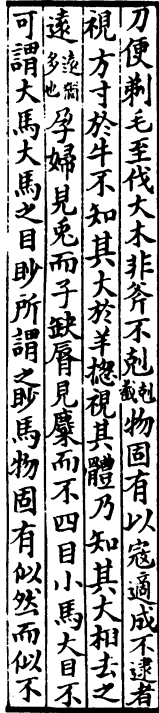 刀便剃毛至伐大木非斧不剋剋截物固有以寇適成不逮者
視方寸於牛不知其大於羊揔視其體乃知其大相去之
遠遠猶多也孕婦見兎而子缺脣見麋而不四目小馬大目不
可謂大馬大馬之目眇所謂之眇馬物固有似然而似不